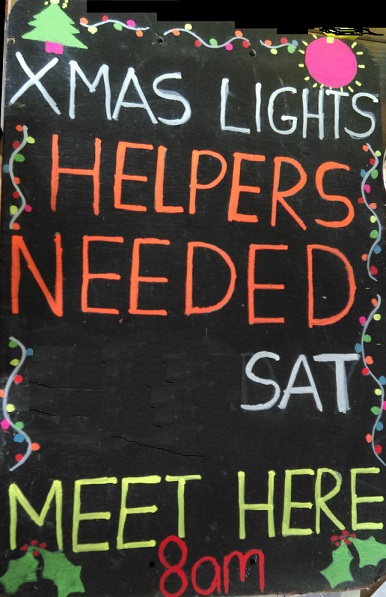 XMAS LIGHTS
HELPERS
NEEDED
SAT
MEET HERE
8am